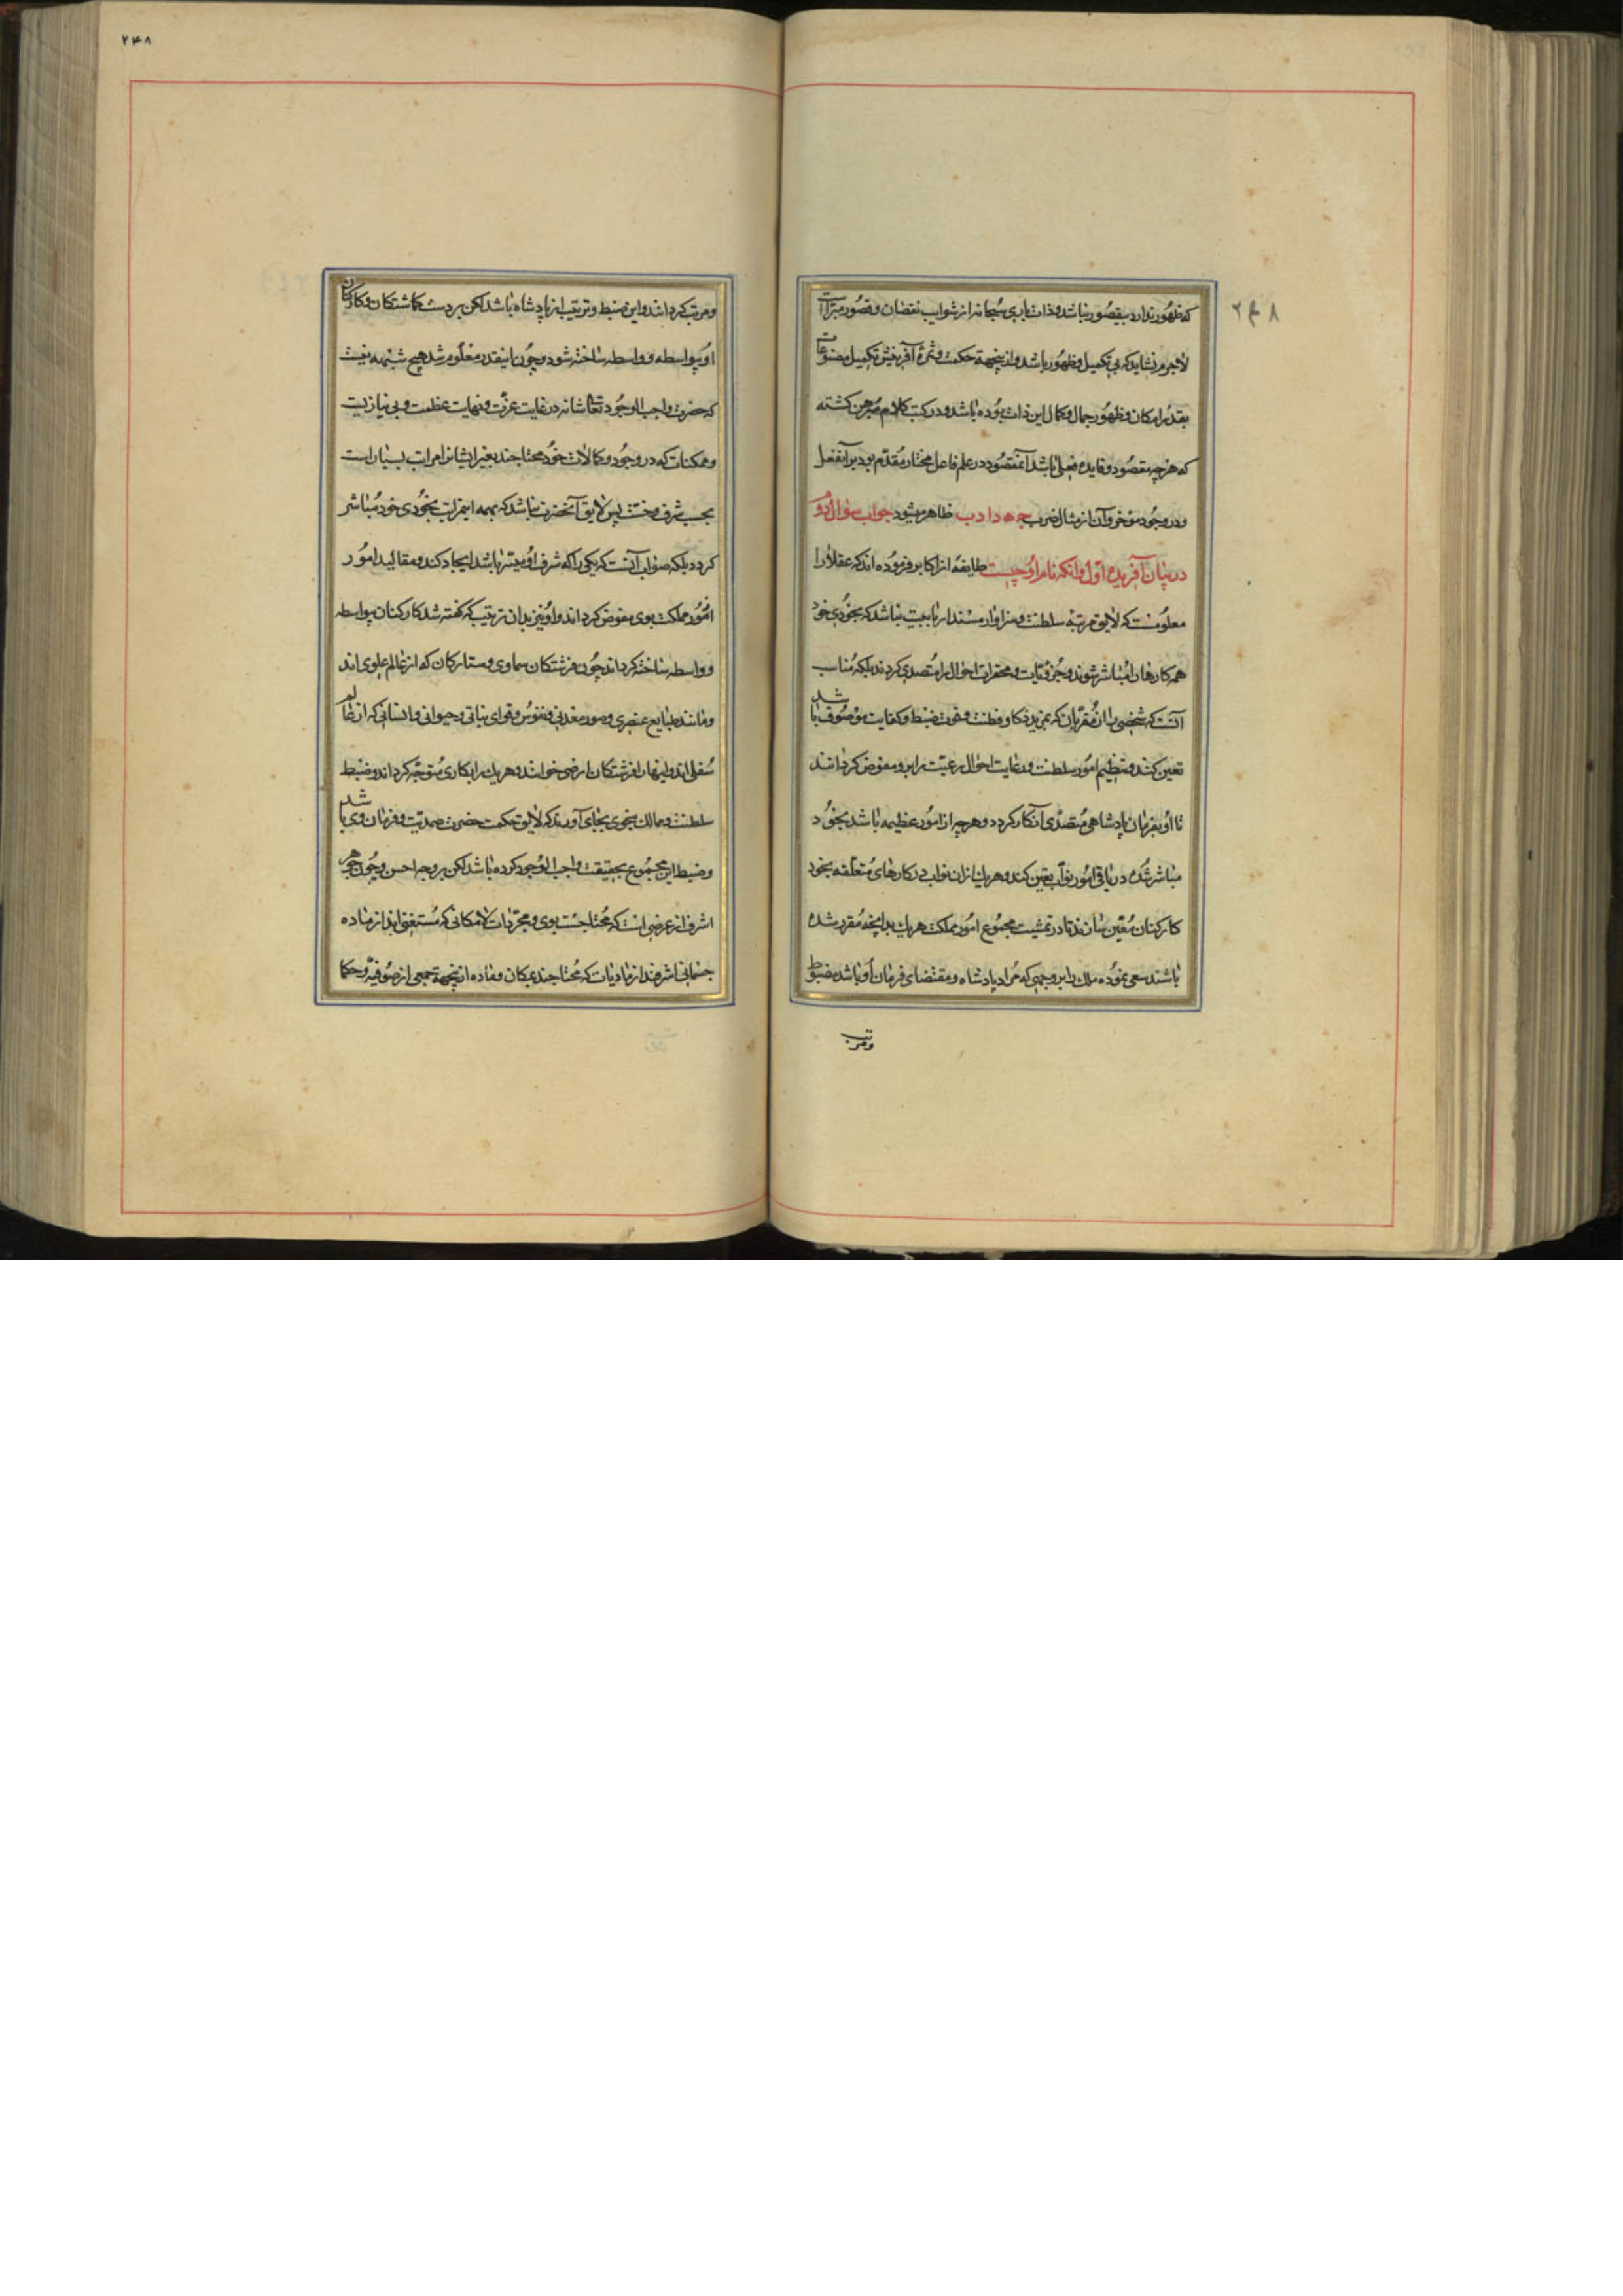 که ظهور ندارد بیقصور نباشد و ذات باری سبحانه از شوایب نقصان و قصور مبراست
لاجرم نشاید که بی تکمیل و ظهور باشد و از ینجهة حکمت و ثمرهٔ آفرینش تکمیل مصنوعات
بقدر امکان و ظهور جمال و کمال این ذات بوده باشد و در کتب کلام مبرهن کشته
که هر چه مقصود و فایده فعلی باشد آنمقصود در علم فاعل مختار مقدم بود بر آنفعل
و در وجود مؤخر و آن از مثال ضرب ظاهر میشود جواب سؤال دوم
در بیان آفریده اول و آنکه نام او چیست طایفهٔ از اکابر فرموده اند که عقلا را
معلومست که لایق مرتبهٔ سلطنت و سزاوار مسند نباشد که بخودی خود
همه کارها را مباشر شوند و جزویات و محقرات احوال را متصدی کردند بلکه مناسب
آنست که شخصی را از مقربان که بمزید ذکا و فطنت و قوت ضبط و کفایت موصوف باشد
تعین کنند و تنظیم امور سلطنت و رعایت احوال رعیت را برو مفوض کردانند
تا او بفرمان پادشاهی متصدی آنکار کردد و هر چه از امور عظیمه باشد بخود
مباشر شده در باقی امور نواب تعین کند و هر یک از ان نواب در کارهای متعلقه بخود
کارکنان معین سازند تا در تمشیت مجموع امور مملکت هر یک بدانچه مقرر شده
باشند سعی نموده ملک را بر وجهی که مراد پادشاه و مقتضای فرمان او باشد مضبوط
و مرتب
۲۴۸
۲۴۸
و مرتب کردانند و این ضبط و ترتیب از پادشاه باشد لکن بر دست کماشتکان و کارکنان
او بواسطه و واسطه ساخته شود و چون اینقدر معلوم شد هیچ شبهه نیست
که حضرت واجب الوجود تعالی شانه در غایت عزت و نهایت عظمت و بی نیازیست
و ممکنات که در وجود و کمالات خود محتاجند بغیر ایشانرا مراتب بسیار است
بحسب شرف و خست پس لایق آنحضرت نباشد که بهمه اینمراتب بخودی خود مباشر
کردد بلکه صواب آنست که یکی را که شرف او بیشتر باشد ایجاد کند و مقالید امور
امور مملکت بوی مفوض کرداند و او نیز بدان ترتیب که کفته شد کارکنان بواسطه
و واسطه ساخته کرداند چون فرشتکان سماوی و ستارکان که از عالم علوی اند
و مانند طبایع عنصری و صور معدنی و نفوس و قوای نباتی و حیوانی و انسانی که از عالم
سفلی اند و اینها را فرشتکان ارضی خوانند و هر یک را بکاری متوجه کرداند و ضبط
سلطنت و ممالک بنحوی بجای آورند که لایق حکمت حضرت صمدیت و فرمان وی باشد
و ضبط این مجموع بحقیقت واجب الوجود کرده باشد لکن بر وجه احسن و چون جوهر
اشرف از عرضی است که محتاجست بوی و مجردات لامکانی که مستغنی اند از ماده
جسمانی اشرفند از مادیات که محتاجند بمکان و ماده از ینجهة جمعی از صوفیه و حکما